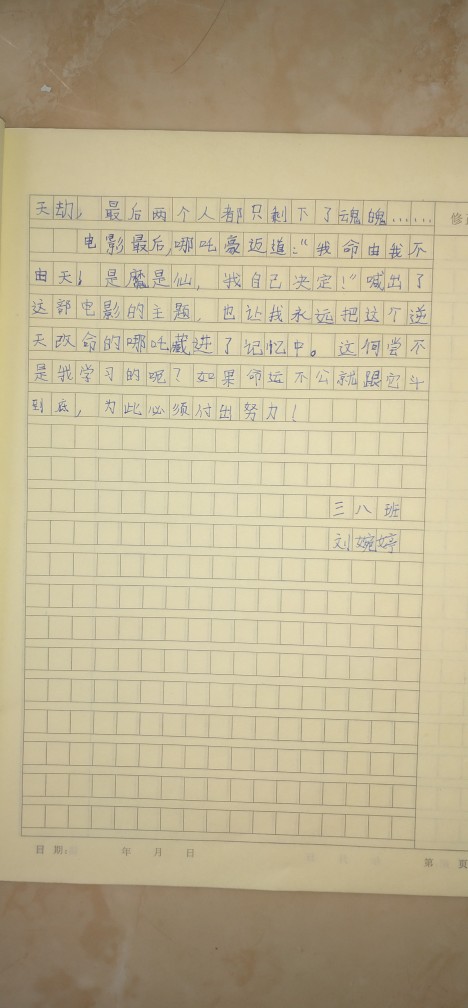 天劫，最后两个人都只剩下了魂魄……
电影最后，哪吒豪迈道："我命由我不
由天！是魔是仙，我自己决定！"喊出了
这部电影的主题，也让我永远把这个逆
天改命的哪吒藏进了记忆中。这何尝不
是我学习的呢？如果命运不公就跟它斗
到底，为此必须付出努力！
三八班
刘婉婷
日期： 年 月 日
第 页